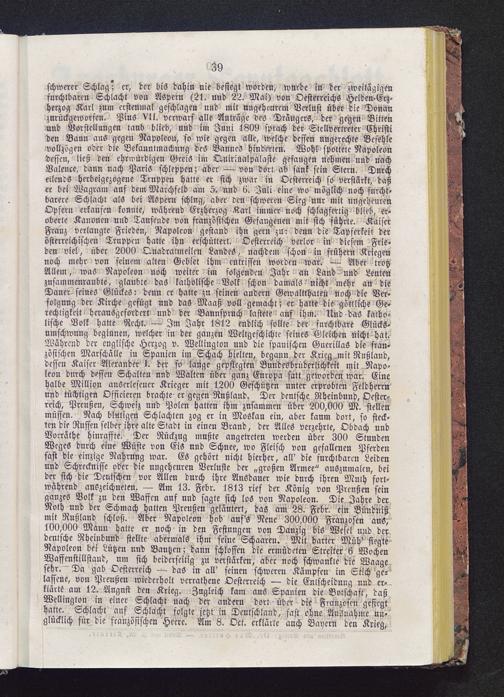 39
schwerer Schlag: er, der bis dahin nie besiegt worden, wurde in der zweitägigen
furchtbaren Schlacht von Aspern (21. und 22. Mai) von Oesterreichs Helden-Erz-
herzog Karl zum erstenmal geschlagen und mit ungeheurem Verlust über die Donau
zurückgeworfen. Pius VII. verwarf alle Anträge des Drängers, der gegen Bitten
und Vorstellungen taub blieb, und im Juni 1809 sprach der Stellvertreter Christi
den Bann aus gegen Napoleon, so wie gegen alle, welche dessen ungerechte Befehle
vollzögen oder die Bekanntmachung des Bannes hinderten. Wohl spottete Napoleon
dessen, ließ den ehrwürdigen Greis im Quirinalpalaste gefangen nehmen und nach
Valence, dann nach Paris schleppen; aber — von dort ab sank sein Stern. Durch
eilends herbeigezogene Truppen hatte er sich zwar in Oesterreich so verstärkt, daß
er bei Wagram auf dem Marchfeld am 5. und 6. Juli eine wo möglich noch furcht-
barere Schlacht als bei Aspern schlug, aber den schweren Sieg nur mit ungeheuren
Opfern erkaufen konnte, während Erzherzog Karl immer noch schlagfertig blieb, er-
oberte Kanonen und Tausende von französischen Gefangenen mit sich führte. Kaiser
Franz verlangte Frieden, Napoleon gestand ihn gern zu: denn die Tapferkeit der
österreichischen Truppen hatte ihn erschüttert. Oesterreich verlor in diesem Frie-
den viel, über 2000 Quadratmeilen Landes, nachdem schon in frühern Kriegen
noch mehr von seinem alten Gebiet ihm entrissen worden war. Aber trotz
Allem, was Napoleon noch weiter im folgenden Jahr an Land und Leuten
zusammenraubte, glaubte das katholische Volk schon damals nicht mehr an die
Dauer seines Glückes: denn er hatte zu seinen andern Gewaltthaten noch die Ver-
folgung der Kirche gefügt und das Maaß voll gemacht; er hatte die göttliche Ge-
rechtigkeit herausgefordert und der Bannspruch lastete auf ihm. Und das katho-
lische Volk hatte Recht. — Im Jahr 1812 endlich sollte der furchtbare Glücks-
umschwung beginnen, welcher in der ganzen Weltgeschichte seines Gleichen nicht hat.
Während der englische Herzog v. Wellington und die spanischen Guerillas die fran-
zösischen Marschälle in Spanien im Schach hielten, begann der Krieg mit Rußland,
dessen Kaiser Alexander I. der so lange gepflegten Bundesbrüderlichkeit mit Napo-
leon durch dessen Schalten und Walten über ganz Europa satt geworden war. Eine
halbe Million auserlesener Krieger mit 1200 Geschützen unter erprobten Feldherrn
und tüchtigen Officieren brachte er gegen Rußland. Der deutsche Rheinbund, Oester-
reich, Preußen, Schweiz und Polen hatten ihm zusammen über 200,000 M. stellen
müssen. Nach blutigen Schlachten zog er in Moskau ein, aber kaum dort, so steck-
ten die Russen selber ihre alte Stadt in einen Brand, der Alles verzehrte, Obdach und
Vorräthe hinraffte. Der Rückzug mußte angetreten werden über 300 Stunden
Weges durch eine Wüste von Eis und Schnee, wo Fleisch von gefallenen Pferden
fast die einzige Nahrung war. Es gehört nicht hierher, all' die furchtbaren Leiden
und Schrecknisse oder die ungeheuren Verluste der „großen Armee“ auszumalen, bei
der sich die Deutschen vor Allen durch ihre Ausdauer wie durch ihren Muth fort-
während auszeichneten. — Am 13. Febr. 1813 rief der König von Preußen sein
ganzes Volk zu den Waffen auf und sagte sich los von Napoleon. Die Jahre der
Noth und der Schmach hatten Preußen geläutert, das am 28. Febr. ein Bündniß
mit Rußland schloß. Aber Napoleon hob auf's Neue 300,000 Franzosen aus,
100,000 Mann hatte er noch in den Festungen von Danzig bis Wesel und der
deutsche Rheinbund stellte abermals ihm seine Schaaren. Mit harter Müh' siegte
Napoleon bei Lützen und Bautzen; dann schlossen die ermüdeten Streiter 6 Wochen
Waffenstillstand, um sich beiderseitig zu verstärken, aber noch schwankte die Waage
sehr. Da gab Oesterreich — das in all' seinen schweren Kämpfen in Stich ge-
lassene, von Preußen wiederholt verrathene Oesterreich — die Entscheidung und er-
klärte am 12. August den Krieg. Zugleich kam aus Spanien die Botschaft, daß
Wellington in einer Schlacht nach der andern dort über die Franzosen gesiegt
hatte. Schlacht auf Schlacht folgte jetzt in Deutschland, fast ohne Ausnahme un-
glücklich für die französischen Heere. Am 8. Oct. erklärte auch Bayern den Krieg,